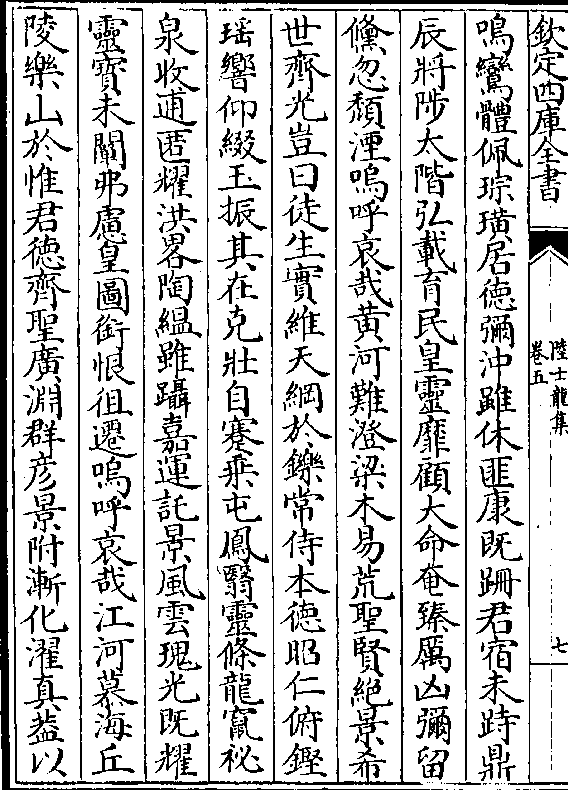 欽定四庫全書
陸士龍集
卷五
七
鳴鸞體佩琮璜居德彌沖雖休匪康既跚君宿未跱鼎
辰將陟太階弘載育民皇靈靡顧大命奄臻厲凶彌留
儵忽頽湮嗚呼哀哉黄河難澄梁木易荒聖賢絶景希
世齊光豈曰徒生實維天綱於鑠常侍本德昭仁俯鏗
瑶響仰綴玉振其在克壯自蹇乗屯鳳翳靈條龍竄祕
泉收逋匿耀洪畧陶緼雖躡嘉運託景風雲瑰光既耀
靈寶未闡弗慮皇圖銜恨徂遷嗚呼哀哉江河慕海丘
陵樂山於惟君德齊聖廣淵群彦景附漸化濯真葢以